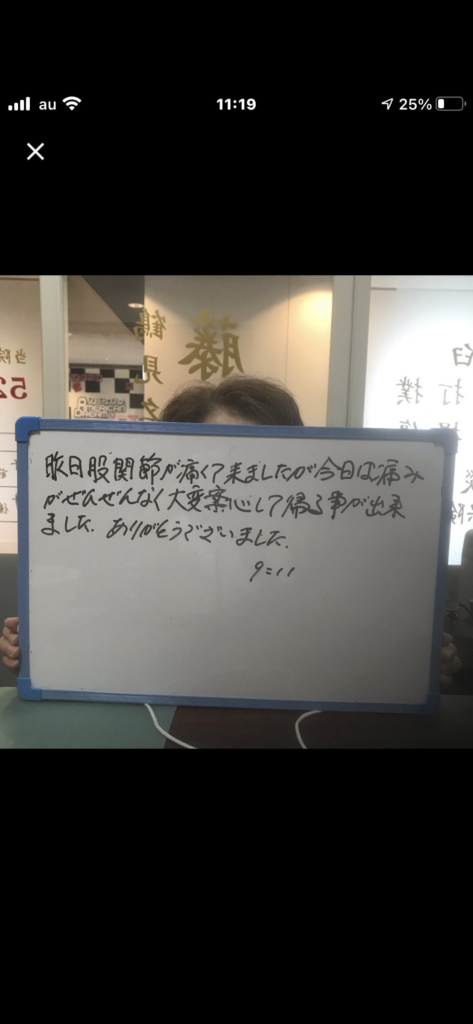 au
11:19
25%
鶴見
藤
当院
52
打撲
昨日股関節が痛くて来ましたが今日は痛み
がぜんぜんなく大変案心して帰る事が出来
ました。ありがとうございました。
9=11